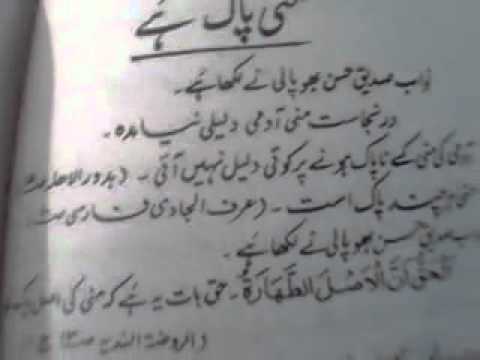 منی پاک ہے
نواب صدیق حسن بھوپالی نے لکھا ہے۔
در نجاست منی آدمی دلیلی نیامدہ۔
آدمی کی منی کے ناپاک ہونے پر کوئی دلیل نہیں آئی۔ (بدور الاھلہ
منی ہر چند پاک است۔ (عرف الجادی فارسی
نواب صدیق حسن بھوپالی نے لکھا ہے۔
اَنَّ الْاَصْلَ الطَّهَارَةُ۔ حق بات یہ ہے کہ منی کی اصل پاک
(الروضة الندیہ